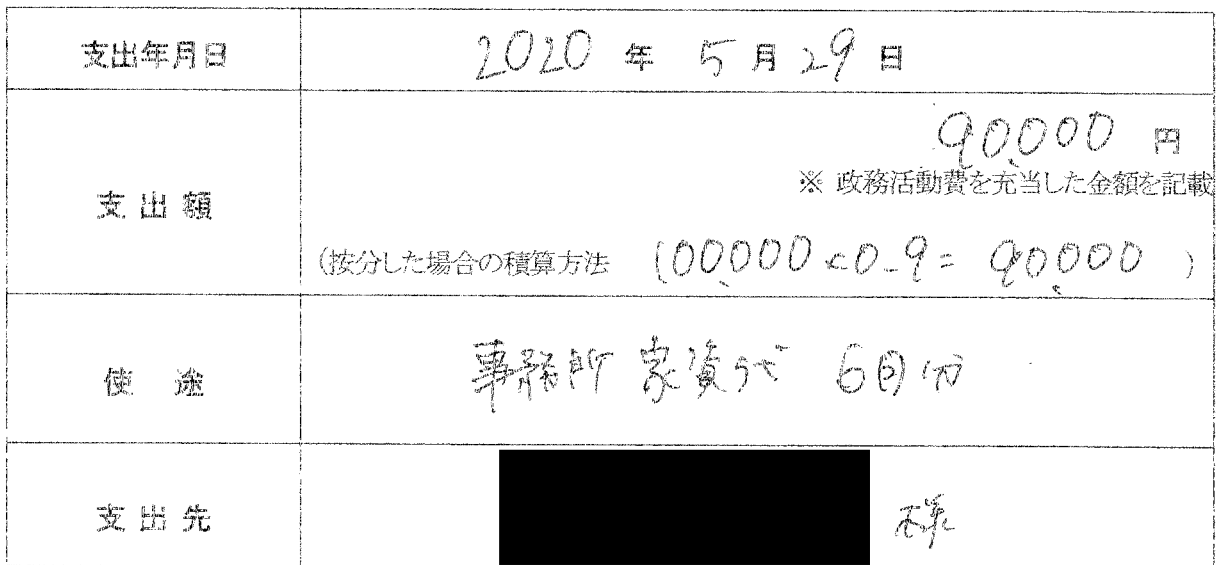 支出年月日
2020 年 5 月 29 日
支出額
90,000 円
※ 政務活動費を充当した金額を記載
(按分した場合の積算方法 100,000×0.9= 90,000 )
使途
事務所 家賃代 6月分
支出先
様